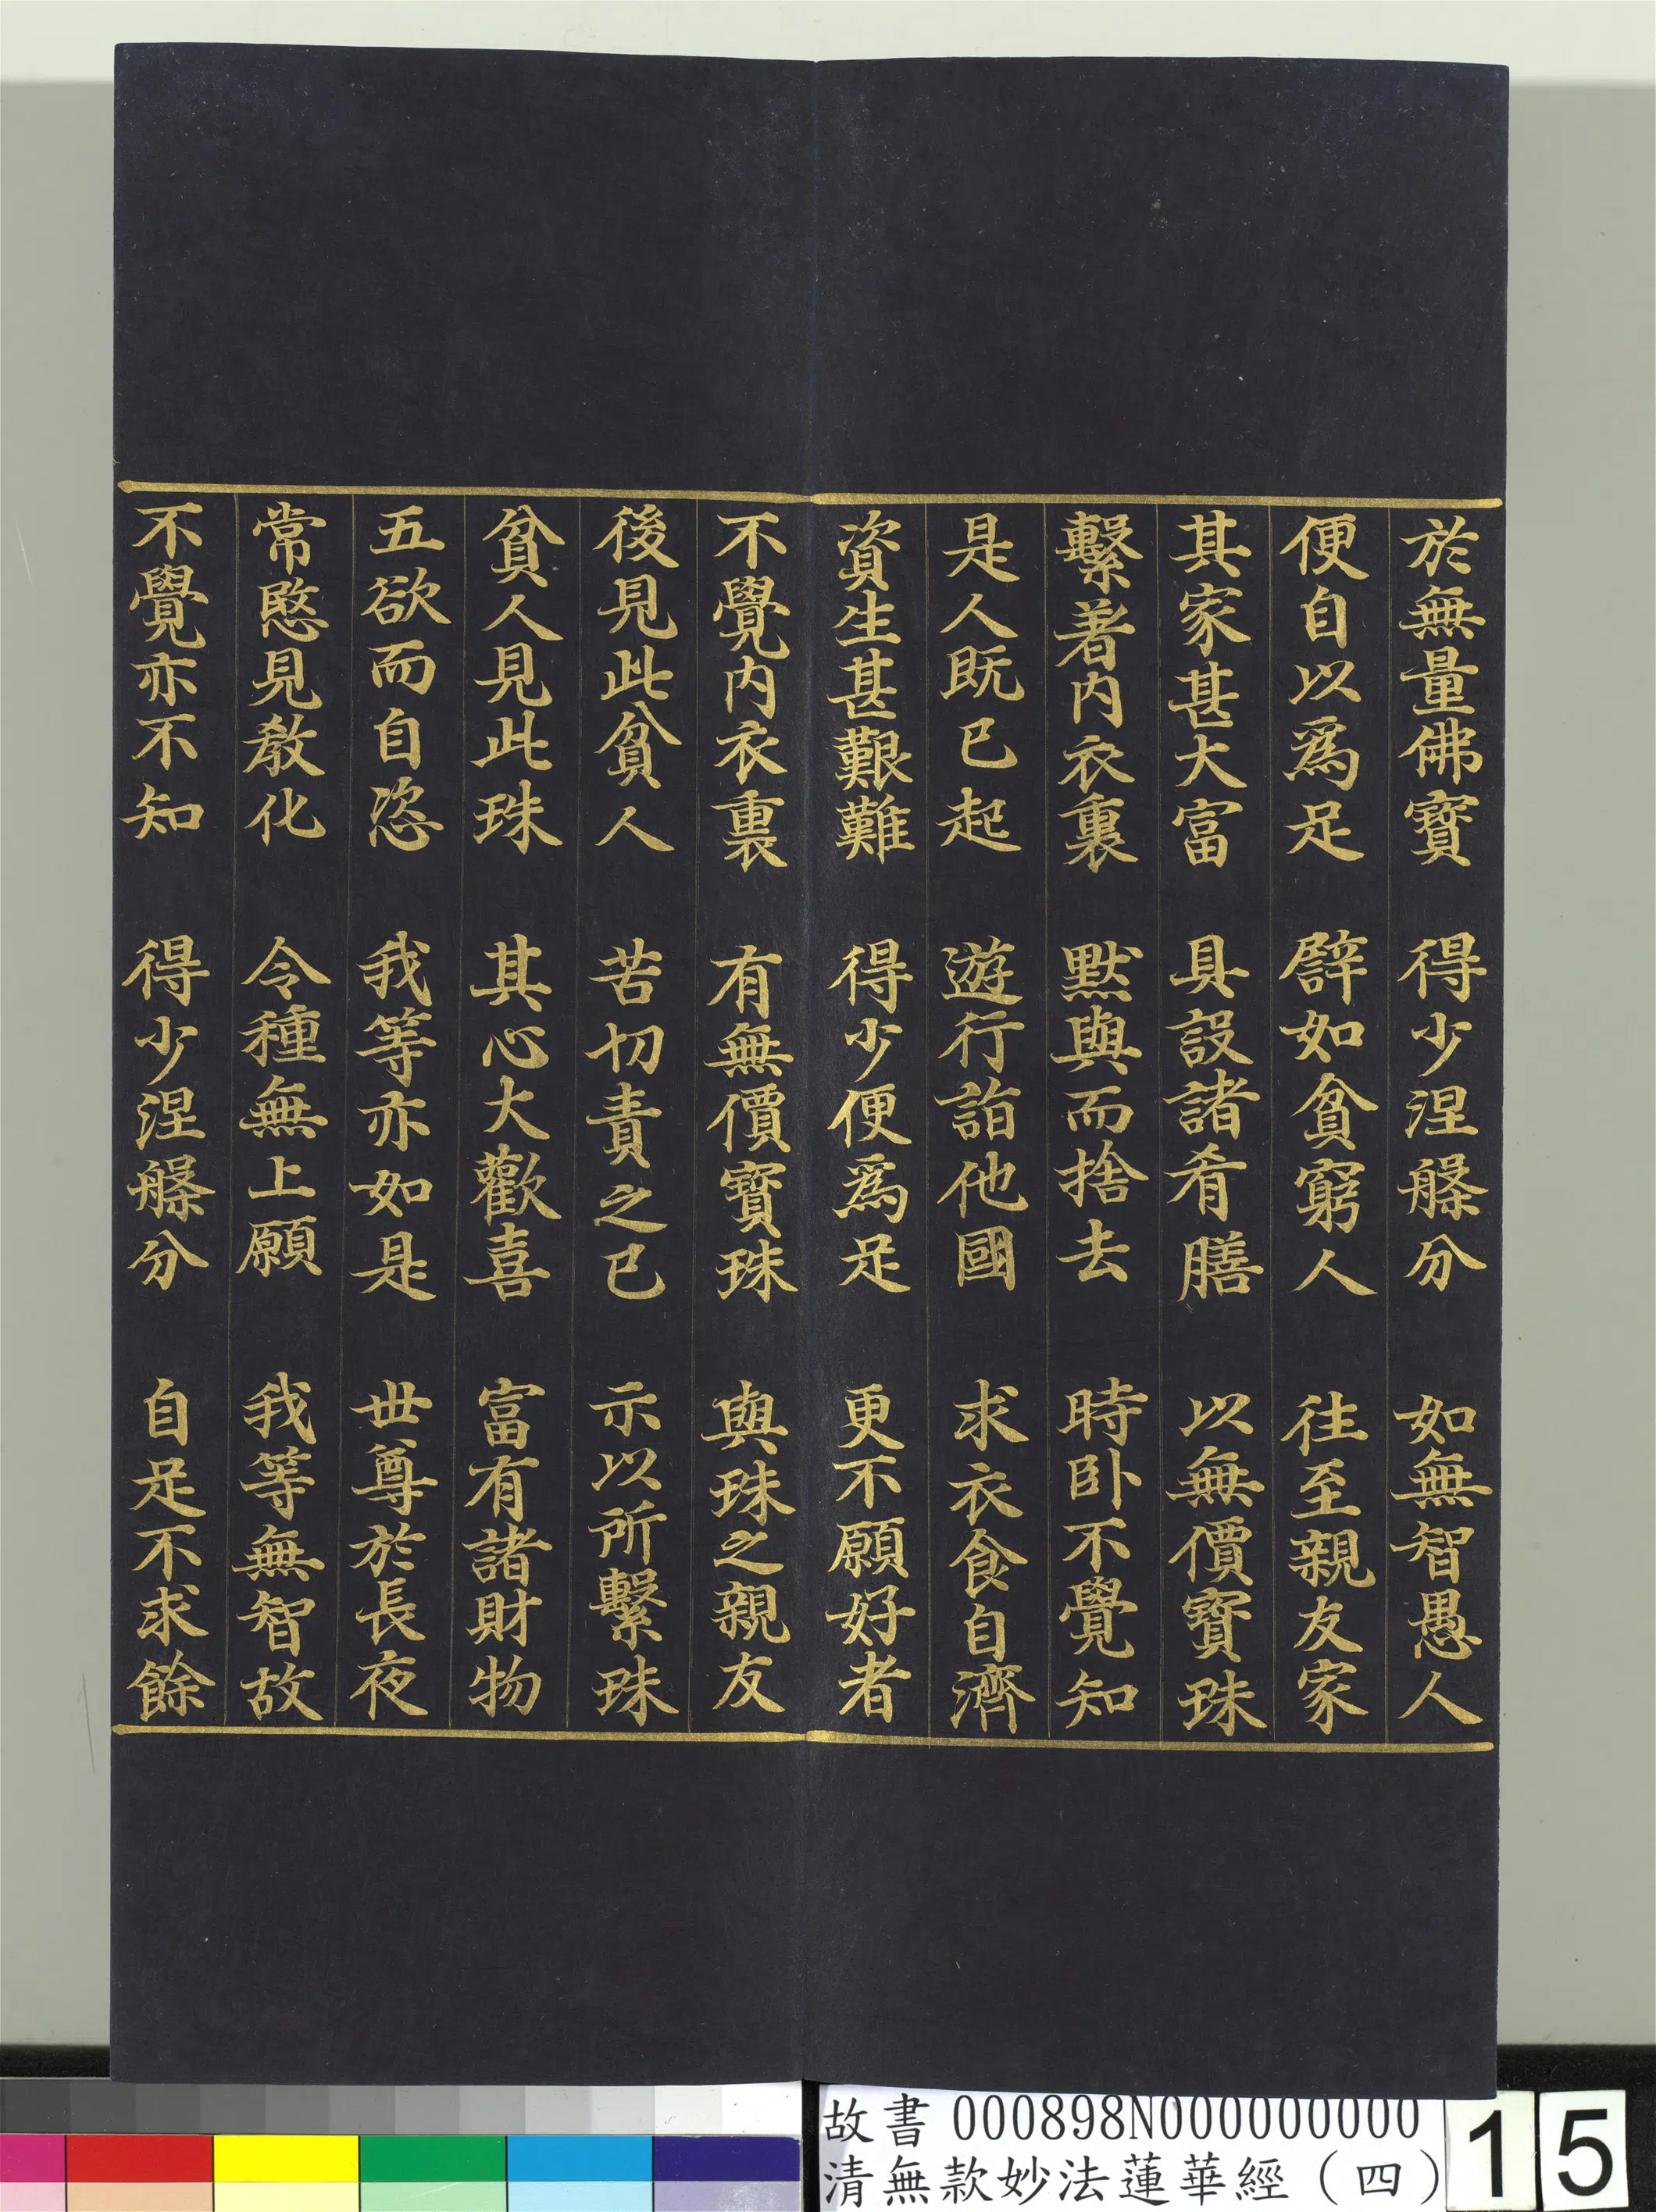 於無量佛寶　得少涅槃分　如無智愚人
便自以爲足　譬如貧窮人　往至親友家
其家甚大富　具設諸肴膳　以無價寶珠
繫著內衣裏　默與而捨去　時臥不覺知
是人既已起　遊行詣他國　求衣食自濟
資生甚艱難　得少便爲足　更不願好者
不覺內衣裏　有無價寶珠　與珠之親友
後見此貧人　苦切責之已　示以所繫珠
貧人見此珠　其心大歡喜　富有諸財物
五欲而自恣　我等亦如是　世尊於長夜
常愍見教化　令種無上願　我等無智故
不覺亦不知　得少涅槃分　自足不求餘
故書 000898N000000000
清無款妙法蓮華經（四）
15